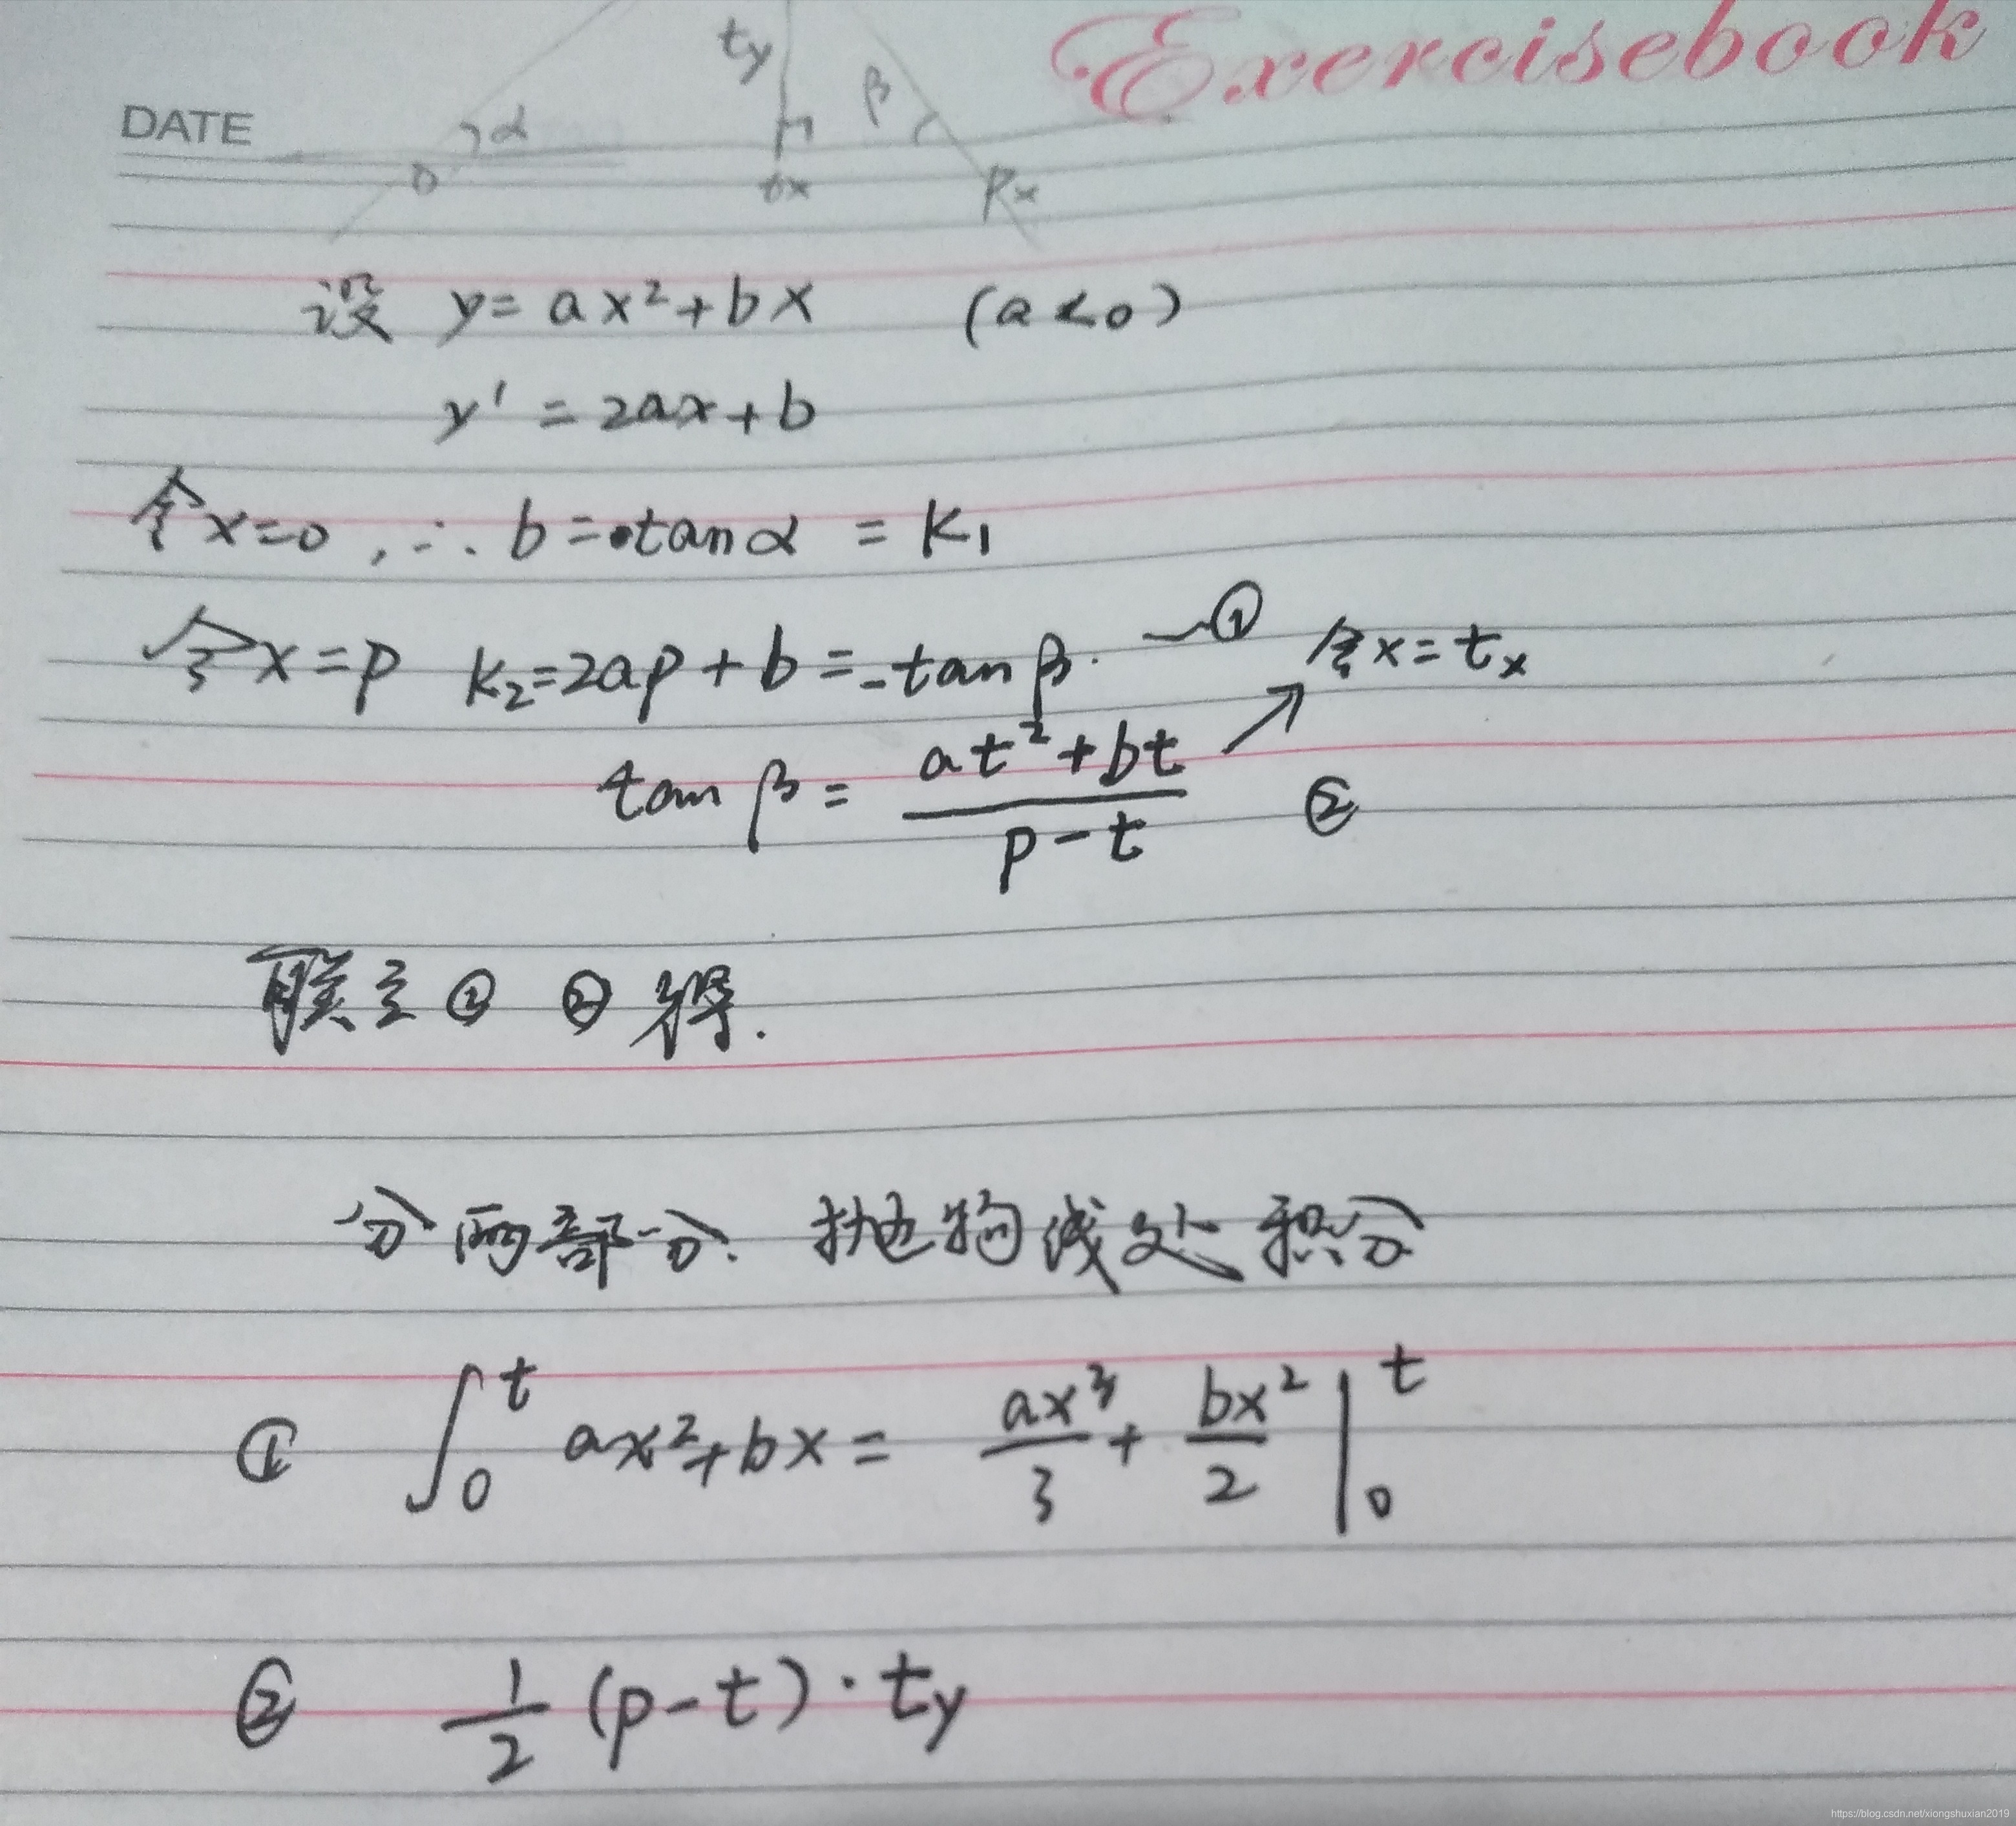 Exercisebook
ty β
DATE α
0 tx Px
设 y = ax² + bx (a<0)
y' = 2ax + b
令x=0, ∴ b = tanα = K₁
令x=p K₂=2ap+b=-tanβ. —① 令x=tₓ
tanβ = (at²+bt)/(p-t) ↗ ②
联立① ②得.
分两部分. 抛物线处积分
① ∫₀ᵗ ax²+bx = ax³/3 + bx²/2 |₀ᵗ
② 1/2 (p-t)·ty
https://blog.csdn.net/xiongshuxian2019